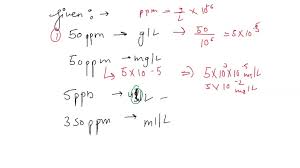 given :→ ppm = g/L × 10^6
① 50 ppm → g/L → 50/10^6 = 5×10^-5
50 ppm → mg/L
↳ 5×10^-5 ⇒ 5×10^3×10^-5 mg/L
5×10^-2 mg/L
5 ppb → L -
350 ppm → ml/L